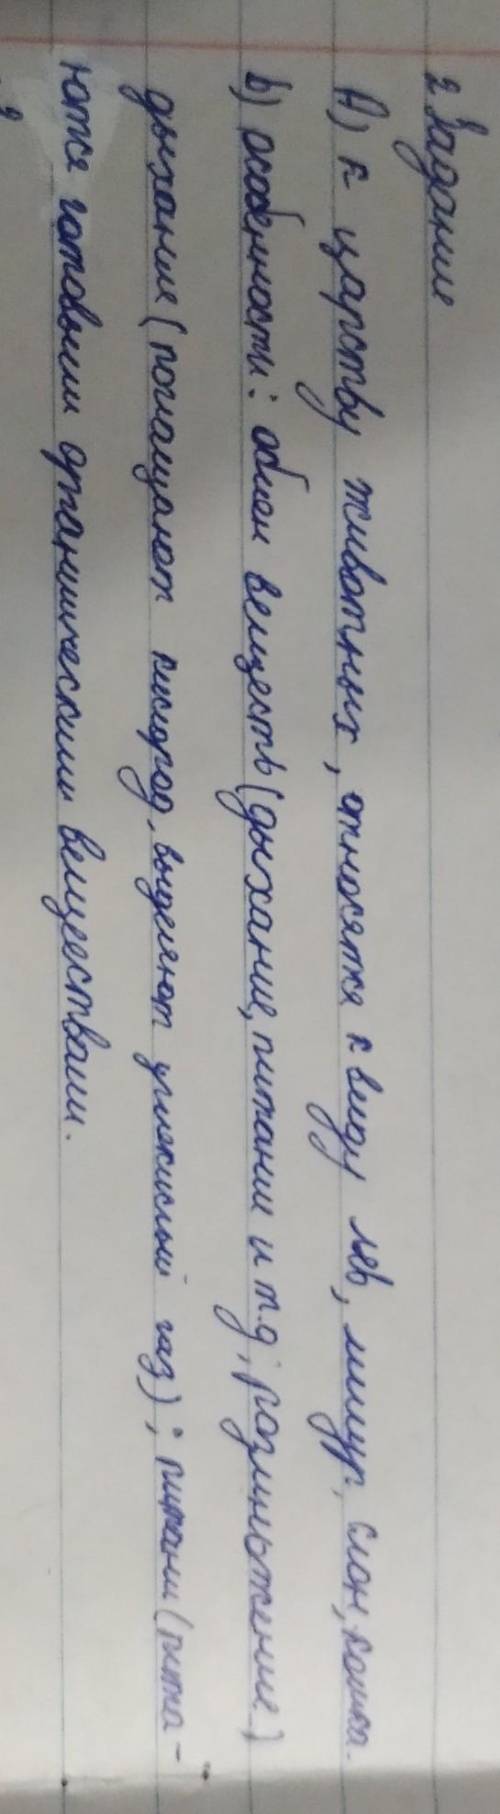 2 Задание
А) к царству животных, относятся к виду лев, лемур, слон, кошка.
b) особенности: обмен веществ (дыхание, питании и т.д; размножение)
дыхании (поглощают кислород, выделяют углекислый газ); питани (пита-
ются готовыми органическими веществами.